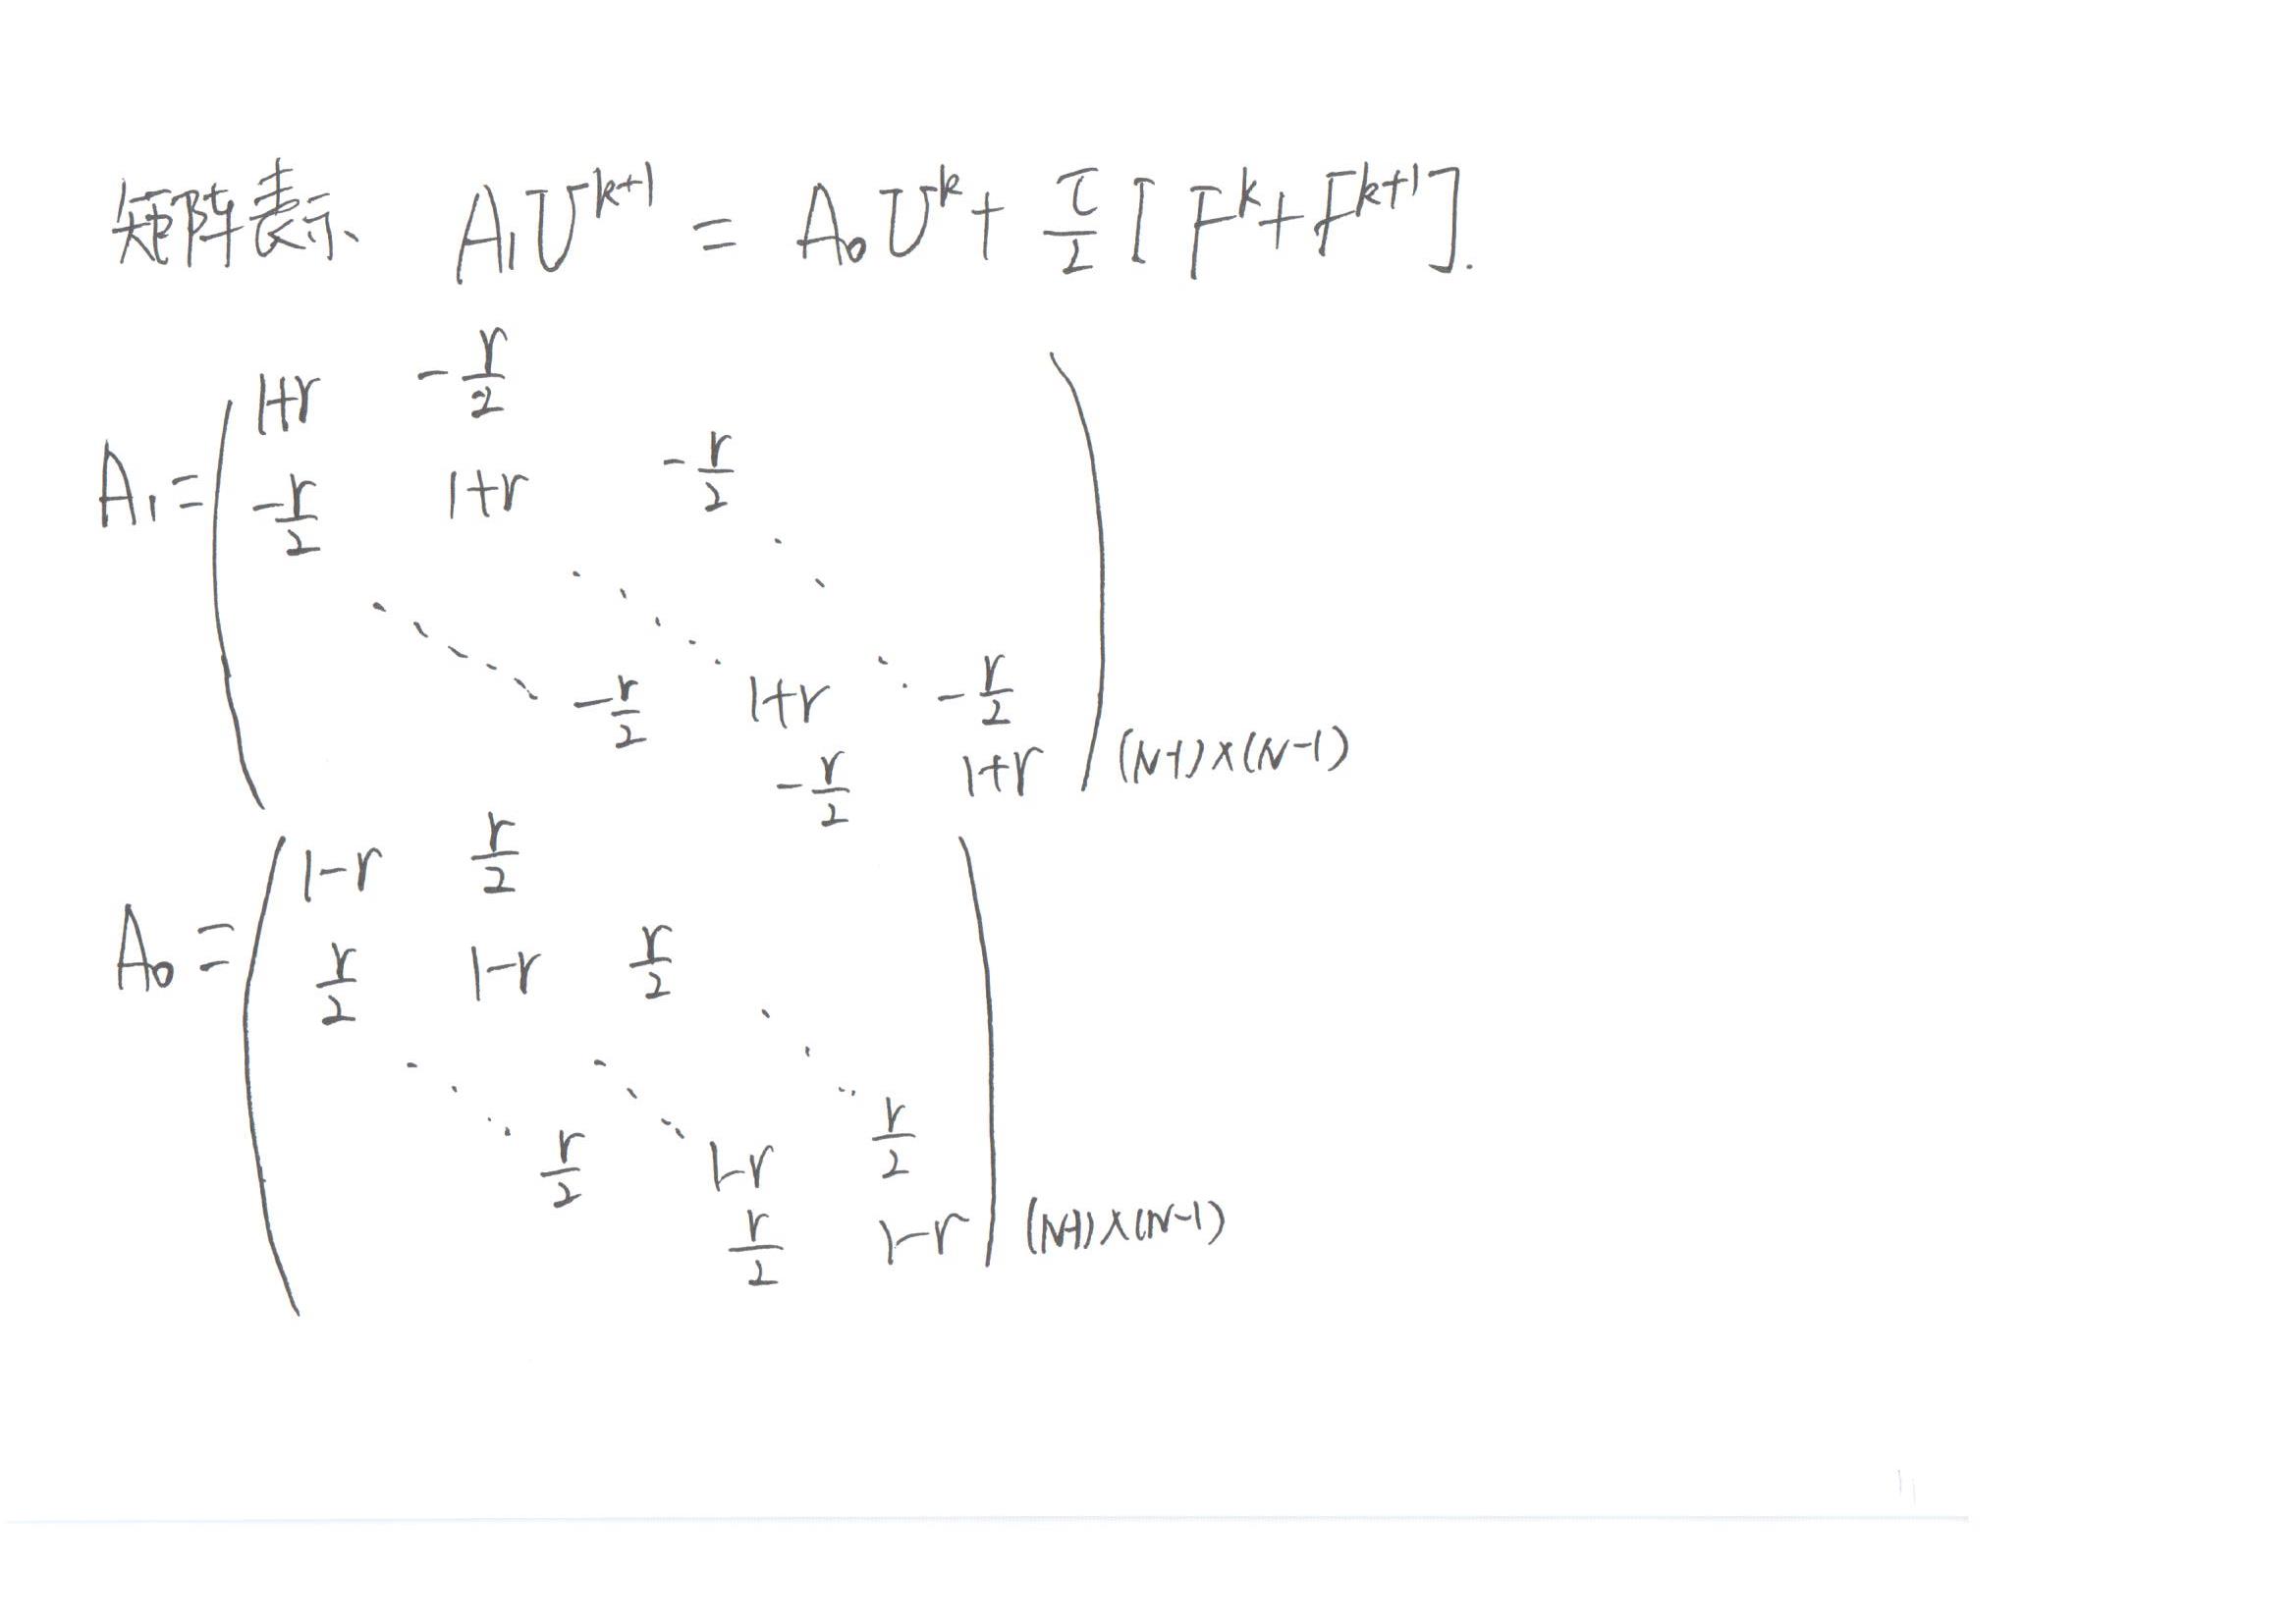 矩阵表示 A₁U^{k+1} = A₀U^k + τ/2 [F^k + F^{k+1}].
1+r -r/2
A₁ = -r/2 1+r -r/2
-r/2 1+r -r/2
-r/2 1+r (N-1)×(N-1)
1-r r/2
A₀ = r/2 1-r r/2
r/2 1-r r/2
r/2 1-r (N-1)×(N-1)